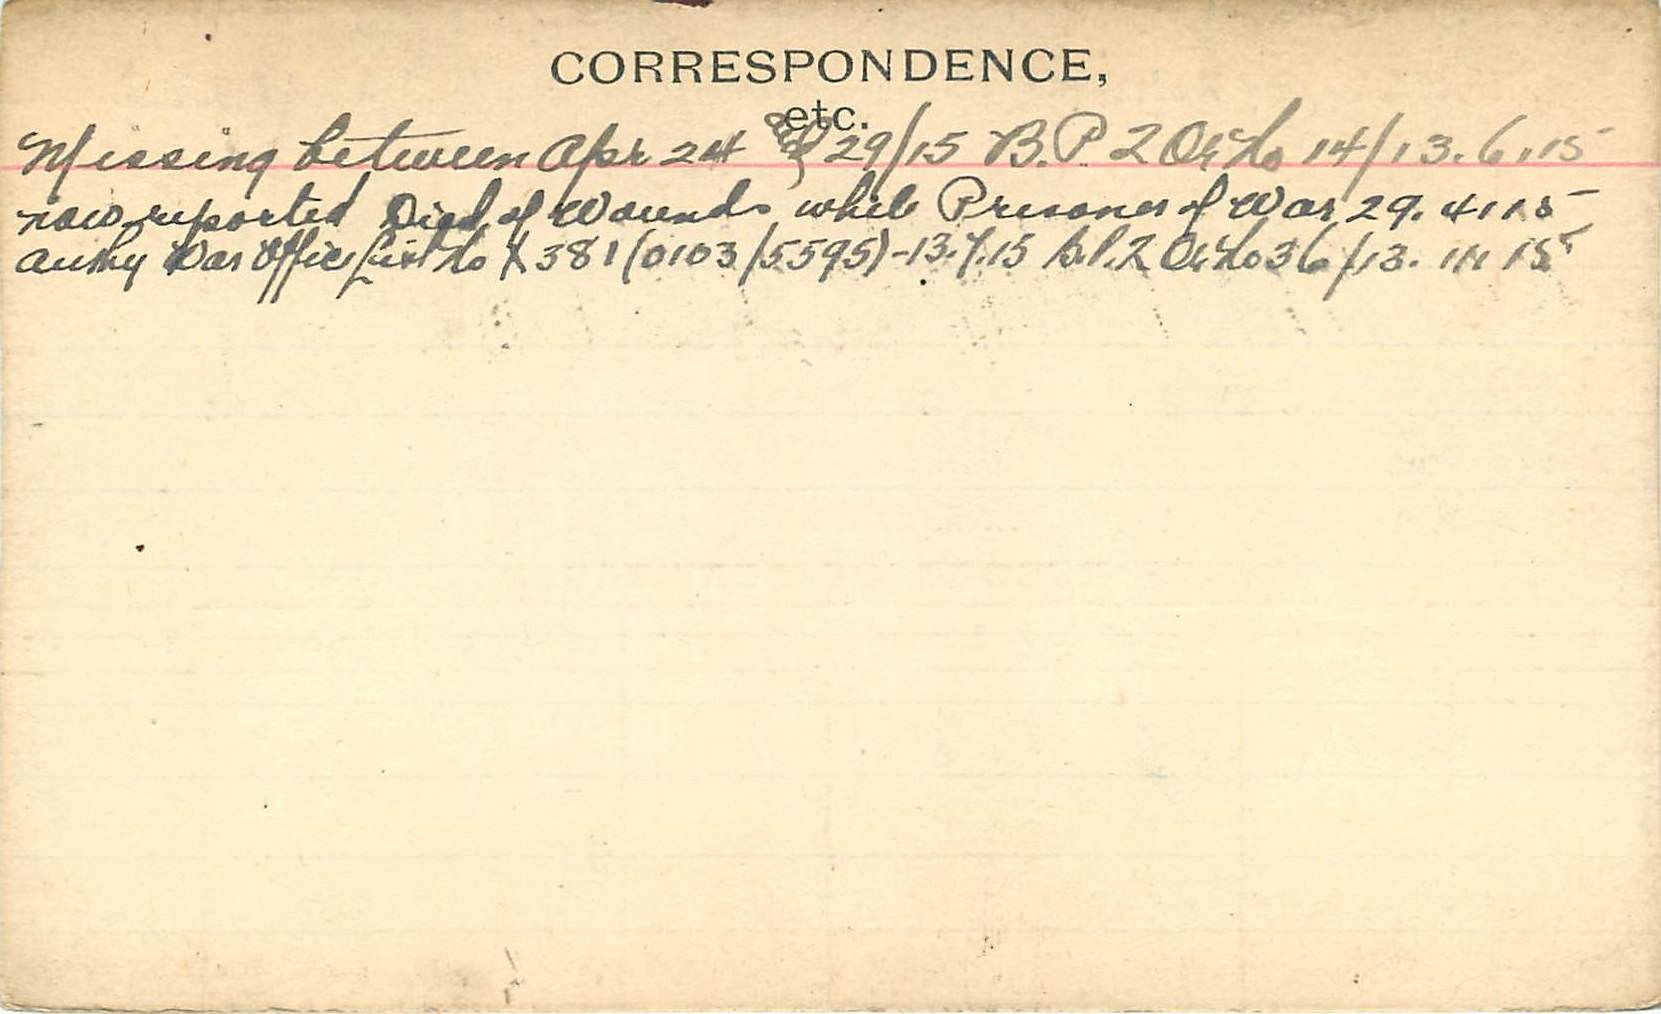 CORRESPONDENCE,
etc.
Missing between Apr 24 & 29/15 B.P. 2 Or No 14/13.6.15
now reported Died of Wounds while Prisoner of War 29.4.15
Authy War Office List No X381 (0103/5595)-13.7.15 B.P.2 Or No 36/13.